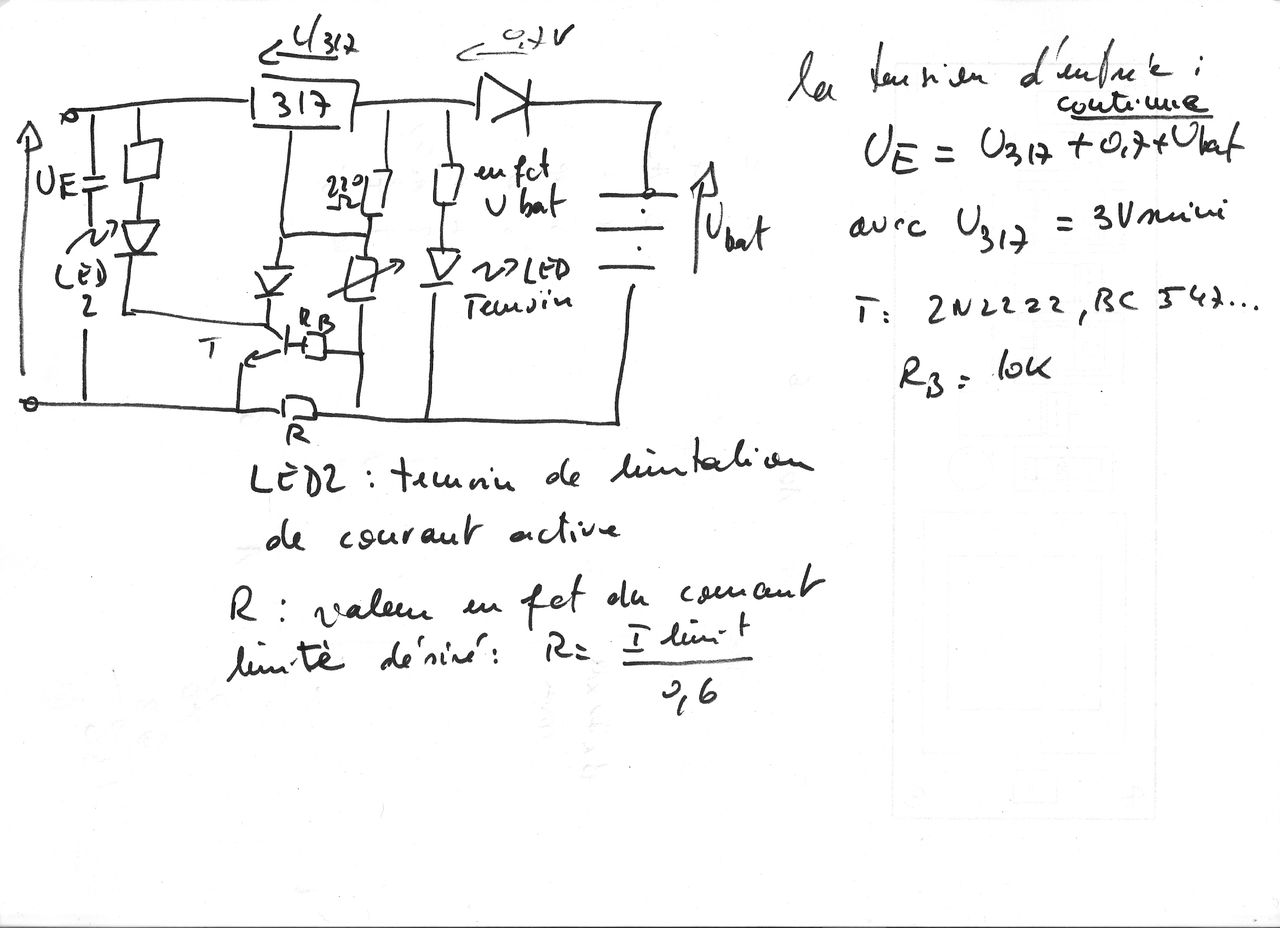 U317
0,7V
317
UE
220
Ω
en fct
U bat
Ubat
LED
2
LED
Temoin
T
RB
R
la tension d'entrée :
continue
UE = U317 + 0,7 + Ubat
avec U317 = 3V mini
T: 2N2222, BC 547...
RB = 10K
LED2 : temoin de limitation
de courant active
R : valeur en fct du courant
limité désiré : R = I limit
0,6